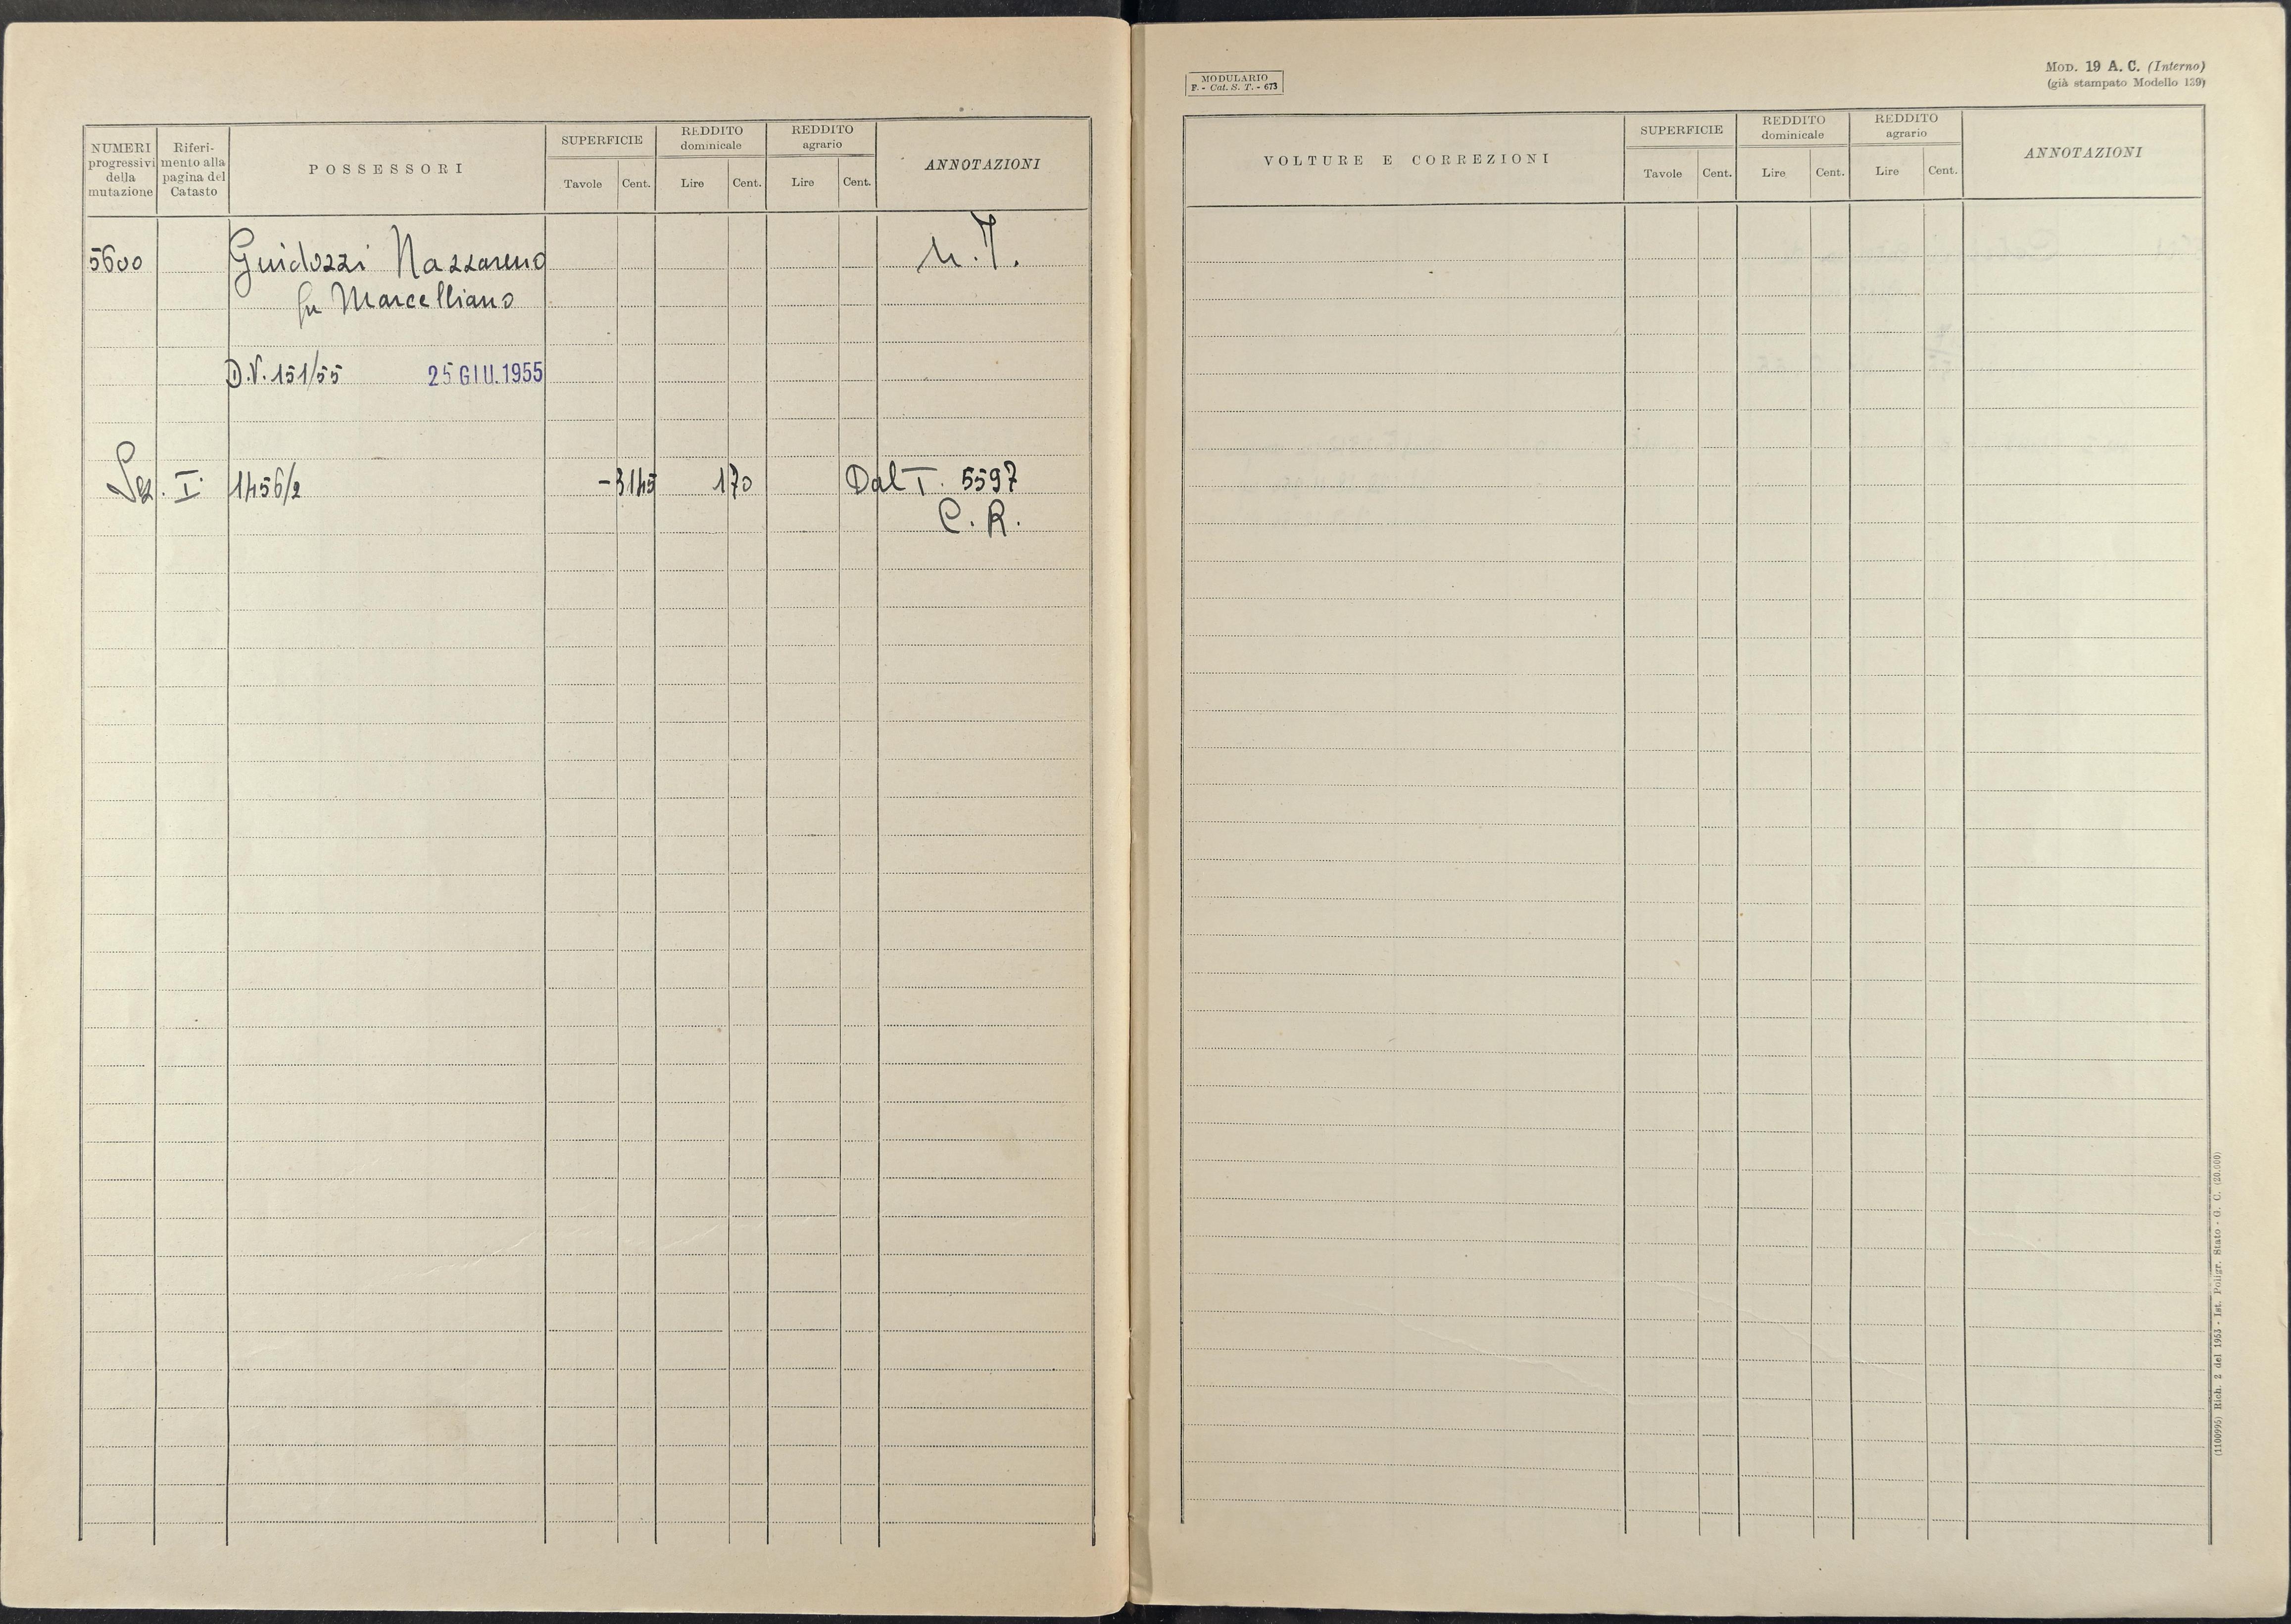 NUMERI progressivi della mutazione
Riferi- mento alla pagina del Catasto
POSSESSORI
SUPERFICIE
Tavole Cent.
REDDITO dominicale
Lire Cent.
REDDITO agrario
Lire Cent.
ANNOTAZIONI
5600 Guidozzi Nazzareno
fu Marcelliano
D.V. 151/55 25 GIU. 1955
Sez. I. 1456/2 -3145 170 Dal T. 5597
C. R.
MODULARIO
F. - Cat. S. T. - 673
MOD. 19 A. C. (Interno)
(già stampato Modello 139)
VOLTURE E CORREZIONI
SUPERFICIE
Tavole Cent.
REDDITO dominicale
Lire Cent.
REDDITO agrario
Lire Cent.
ANNOTAZIONI
(1100995) Rich. 2 del 1953 - Ist. Poligr. Stato - G. C. (20.000)